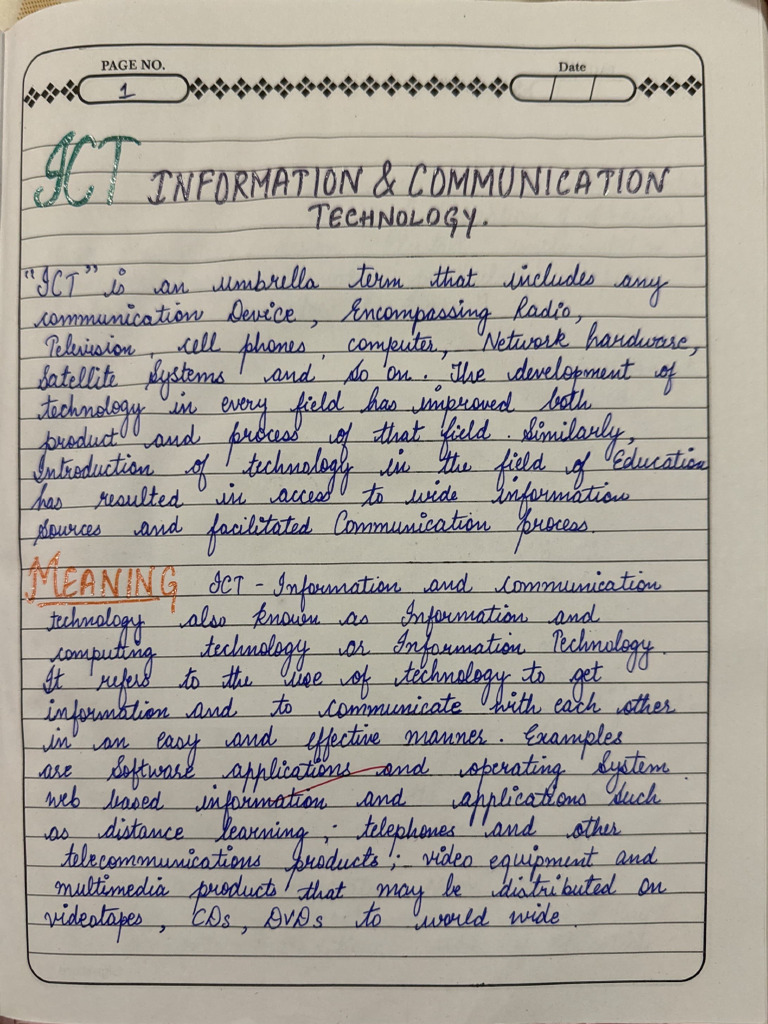 PAGE NO.
Date
1
ICT INFORMATION & COMMUNICATION
TECHNOLOGY.
"ICT" is an umbrella term that includes any
communication Device, Encompassing Radio,
Television, cell phones, computer, Network hardware,
Satellite Systems and so on. The development of
technology in every field has improved both
product and process of that field. Similarly,
Introduction of technology in the field of Education
has resulted in access to wide information
sources and facilitated Communication process.
MEANING ICT - Information and communication
technology also known as Information and
computing technology or Information Technology.
It refers to the use of technology to get
information and to communicate with each other
in an easy and effective manner. Examples
are Software applications and operating System
web based information and applications such
as distance learning ;- telephones and other
telecommunications products ;- video equipment and
multimedia products that may be distributed on
videotapes, CDs, DVDs to world wide.